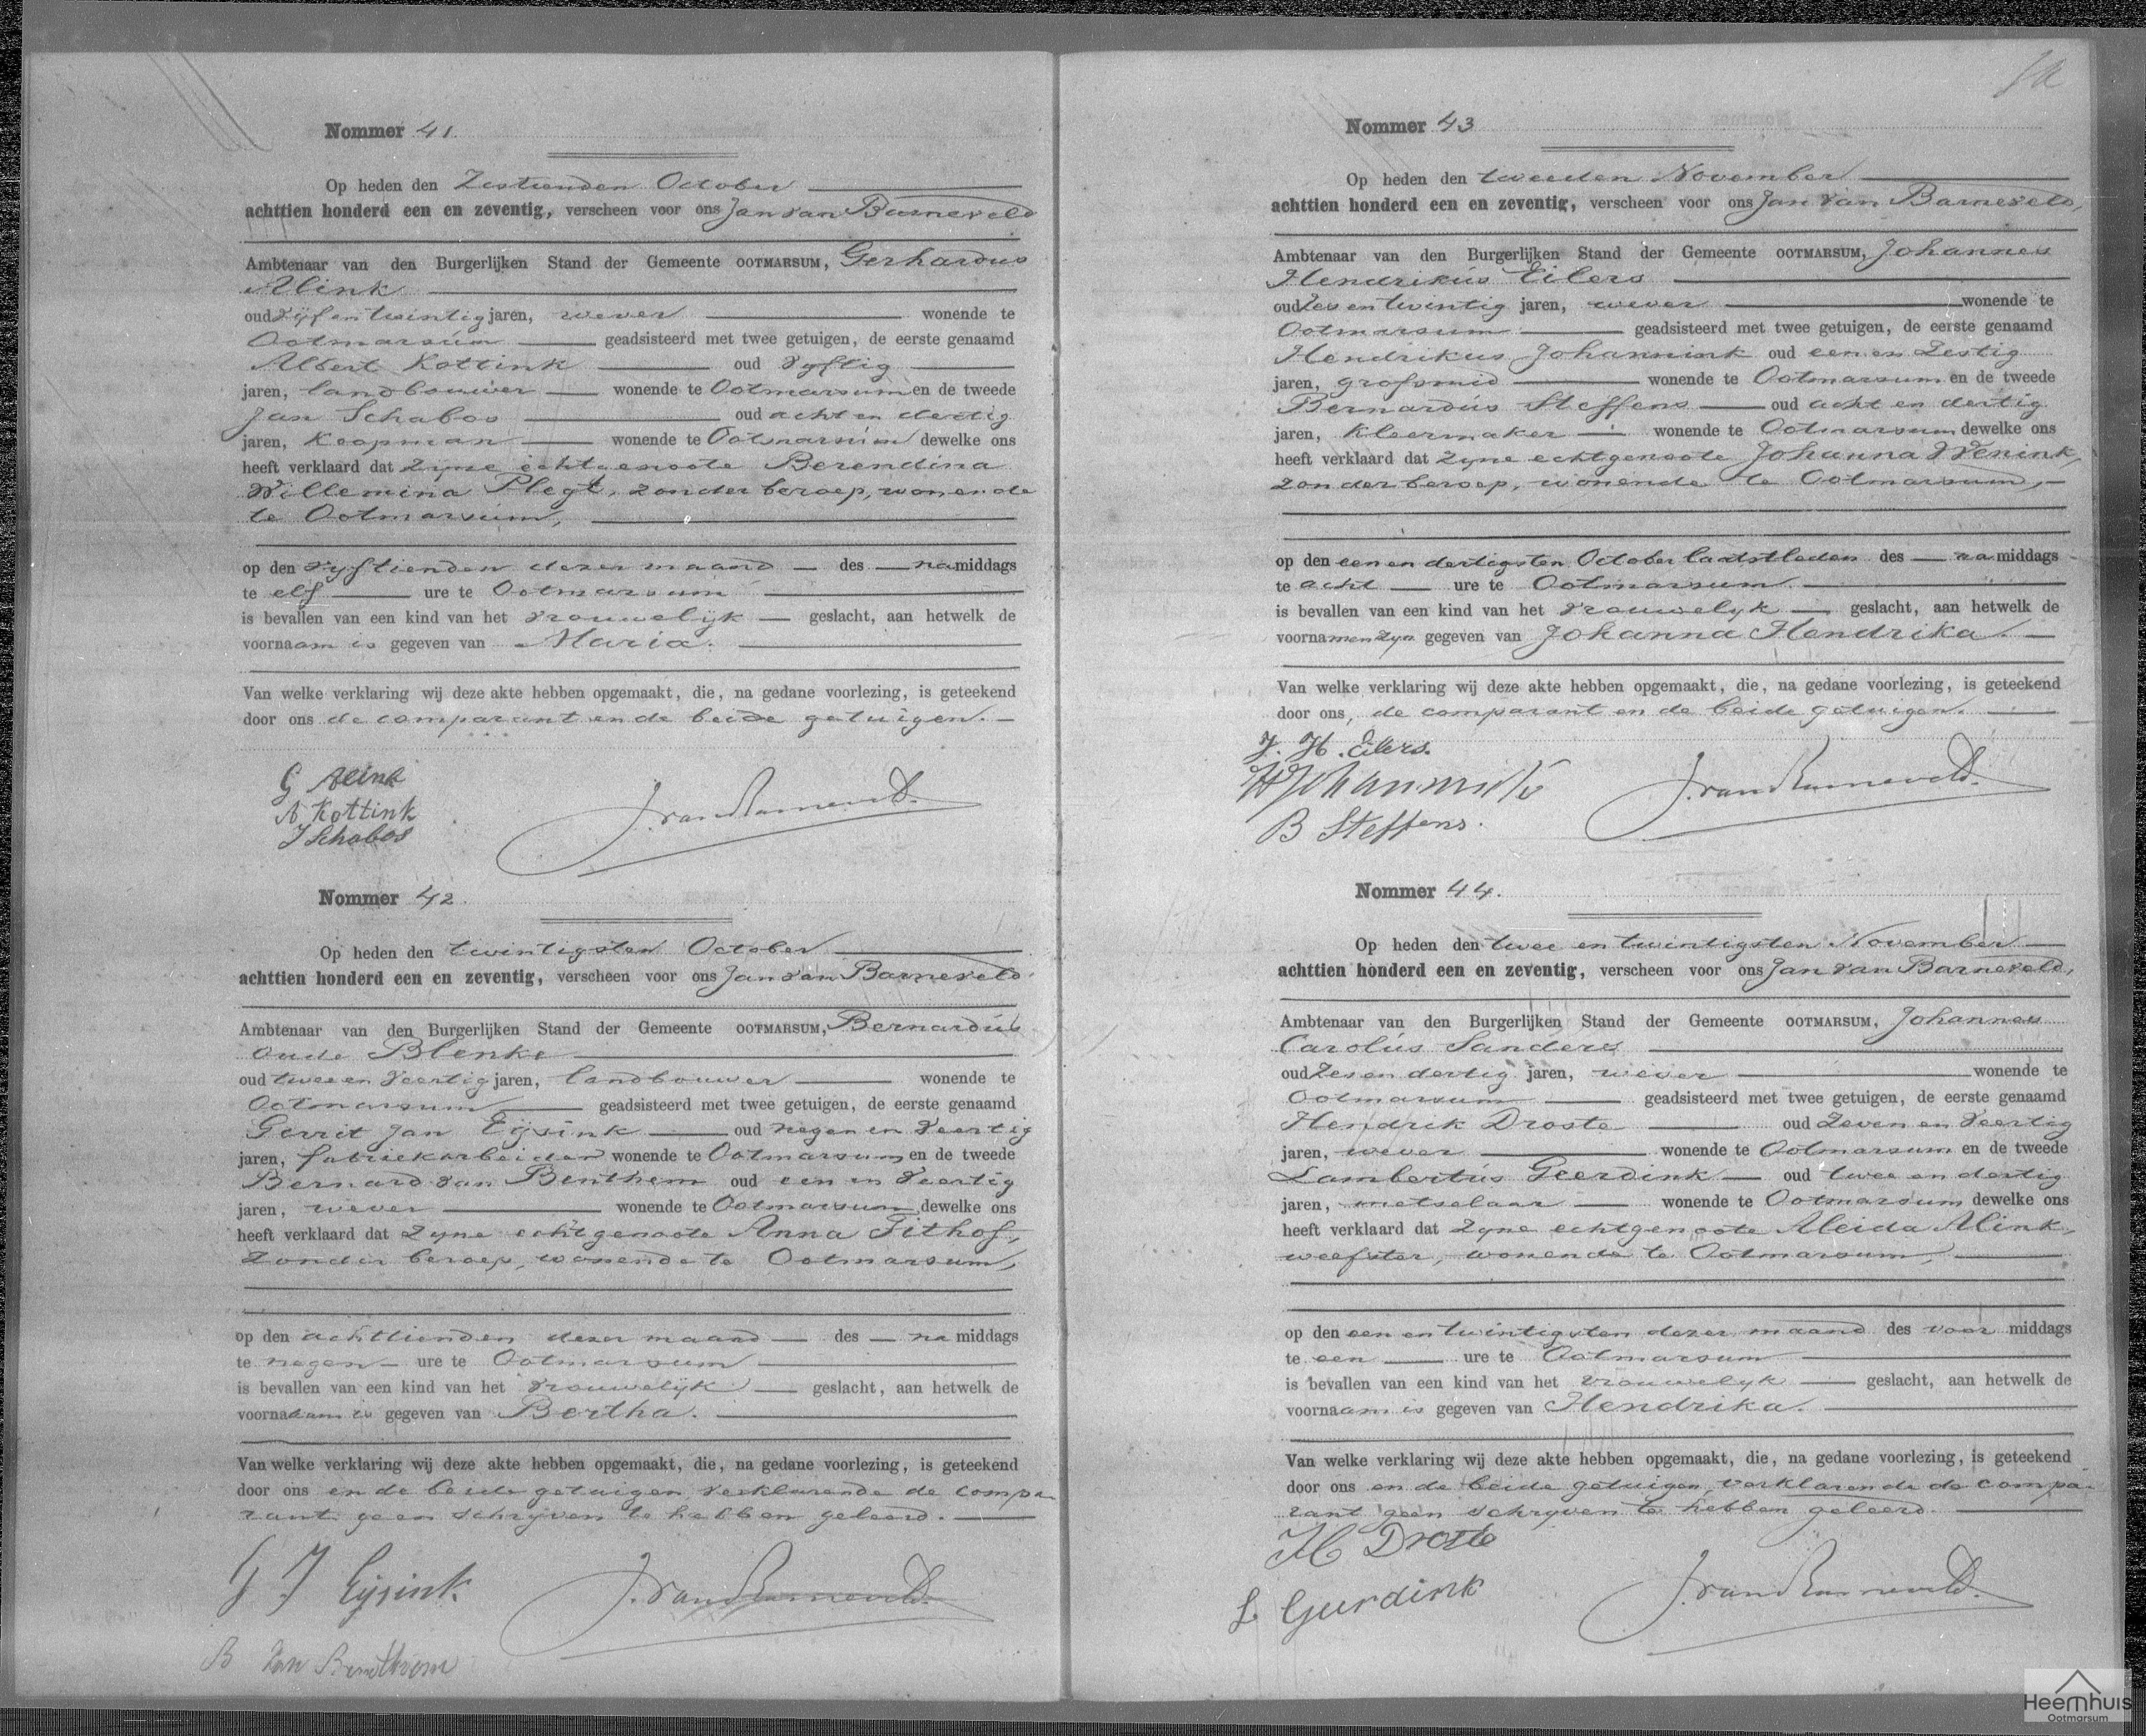 Nommer 41.
Op heden den Zestienden October
achttien honderd een en zeventig, verscheen voor ons Jan van Barneveld
Ambtenaar van den Burgerlijken Stand der Gemeente OOTMARSUM, Gerhardus
Alink
oud vyf en twintig jaren, wever wonende te
Ootmarsum geadsisteerd met twee getuigen, de eerste genaamd
Albert Kottink oud vyftig
jaren, landbouwer wonende te Ootmarsum en de tweede
Jan Schabos oud acht en dertig
jaren, Koopman wonende te Ootmarsum dewelke ons
heeft verklaard dat zyne echtgenoote Berendina
Willemina Plegt, zonder beroep, wonende
te Ootmarsum,
op den vyftienden dezer maand des namiddags
te elf ure te Ootmarsum
is bevallen van een kind van het vrouwelijk geslacht, aan hetwelk de
voornaam is gegeven van Maria.
Van welke verklaring wij deze akte hebben opgemaakt, die, na gedane voorlezing, is geteekend
door ons de comparant en de beide getuigen.
G Alink
A Kottink
J Schabos
J. van Barneveld.
Nommer 42.
Op heden den twintigsten October
achttien honderd een en zeventig, verscheen voor ons Jan van Barneveld
Ambtenaar van den Burgerlijken Stand der Gemeente OOTMARSUM, Bernardus
oude Blenke
oud twee en veertig jaren, landbouwer wonende te
Ootmarsum geadsisteerd met twee getuigen, de eerste genaamd
Gerrit Jan Eijsink oud negen en veertig
jaren, fabriekarbeider wonende te Ootmarsum en de tweede
Bernard van Benthem oud een en veertig
jaren, wever wonende te Ootmarsum dewelke ons
heeft verklaard dat zyne echtgenoote Anna Tithof,
zonder beroep, wonende te Ootmarsum,
op den achttienden dezer maand des na middags
te negen ure te Ootmarsum
is bevallen van een kind van het vrouwelijk geslacht, aan hetwelk de
voornaam is gegeven van Bertha.
Van welke verklaring wij deze akte hebben opgemaakt, die, na gedane voorlezing, is geteekend
door ons en de beide getuigen verklarende de compa-
rant geen schryven te hebben geleerd.
G J Eijsink.
J. van Barneveld.
B van Benthem
Nommer 43
Op heden den tweeden November
achttien honderd een en zeventig, verscheen voor ons Jan van Barneveld,
Ambtenaar van den Burgerlijken Stand der Gemeente OOTMARSUM, Johannes
Hendrikus Eilers
oud zes en twintig jaren, wever wonende te
Ootmarsum geadsisteerd met twee getuigen, de eerste genaamd
Hendrikus Johannink oud een en zestig
jaren, grofsmid wonende te Ootmarsum en de tweede
Bernardus Steffens oud acht en dertig
jaren, Kleermaker wonende te Ootmarsum dewelke ons
heeft verklaard dat zyne echtgenoote Johanna Wenink,
zonder beroep, wonende te Ootmarsum,
op den een en dertigsten October laatstleden des na middags
te acht ure te Ootmarsum.
is bevallen van een kind van het vrouwelyk geslacht, aan hetwelk de
voornamen zyn gegeven van Johanna Hendrika.
Van welke verklaring wij deze akte hebben opgemaakt, die, na gedane voorlezing, is geteekend
door ons, de comparant en de beide getuigen.
J. H. Eilers.
H Johannink
B Steffens.
J. van Barneveld.
Nommer 44.
Op heden den twee en twintigsten November
achttien honderd een en zeventig, verscheen voor ons Jan van Barneveld,
Ambtenaar van den Burgerlijken Stand der Gemeente OOTMARSUM, Johannes
Carolus Sanders
oud zes en dertig jaren, wever wonende te
Ootmarsum geadsisteerd met twee getuigen, de eerste genaamd
Hendrik Droste oud zeven en veertig
jaren, wever wonende te Ootmarsum en de tweede
Lambertus Geerdink oud twee en dertig
jaren, metselaar wonende te Ootmarsum dewelke ons
heeft verklaard dat zyne echtgenoote Aleida Alink,
weefster, wonende te Ootmarsum,
op den een en twintigsten dezer maand des voor middags
te een ure te Ootmarsum
is bevallen van een kind van het vrouwelyk geslacht, aan hetwelk de
voornaam is gegeven van Hendrika.
Van welke verklaring wij deze akte hebben opgemaakt, die, na gedane voorlezing, is geteekend
door ons en de beide getuigen, verklarende de compa-
rant geen schryven te hebben geleerd.
H Droste
L Geerdink
J. van Barneveld.
Heemhuis
Ootmarsum